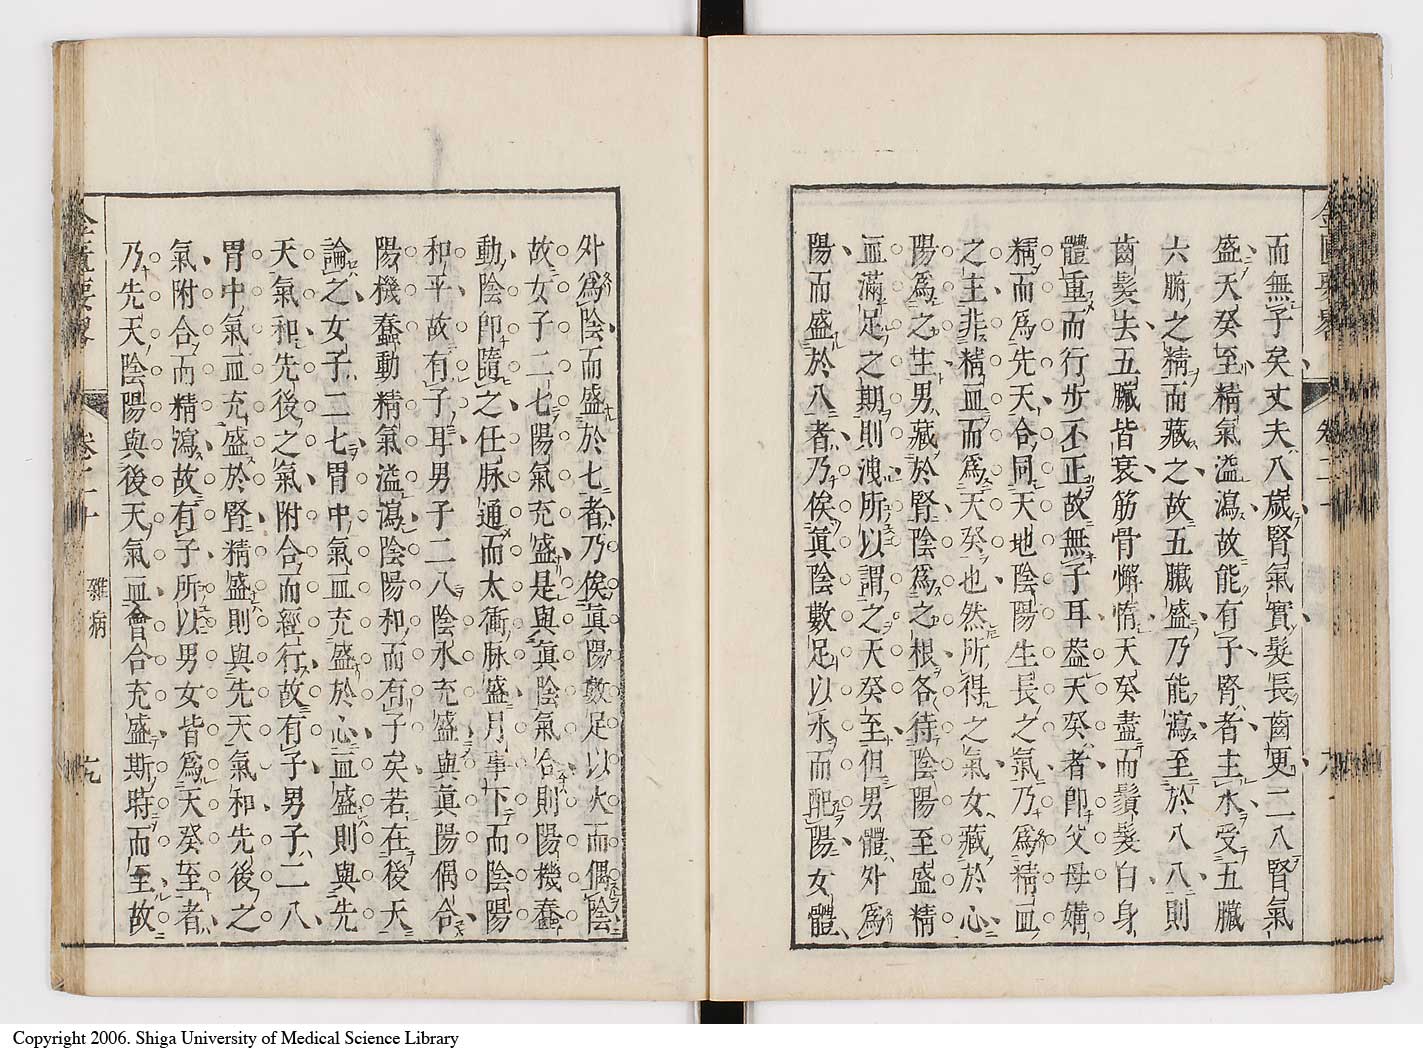 而無子矣丈夫八歲腎氣實髮長齒更二八腎氣
盛天癸至精氣溢瀉故能有子腎者主水受五臟
六腑之精而藏之故五臟盛乃能瀉至於八八則
齒髮去五臟皆衰筋骨懈惰天癸盡而鬚髮白身
體重而行步不正故無子耳蓋天癸者卽父母媾
精而爲先天合同天地陰陽生長之氣乃爲精血
之主非精血而爲天癸也然所得之氣女藏於心
陽爲之生男藏於腎陰爲之根各待陰陽至盛精
血滿足之期則洩所以謂之天癸至但男體外爲
陽而盛於八者乃俟眞陰數足以水而配陽女體
外爲陰而盛於七者乃俟眞陽數足以火而偶陰
故女子二七陽氣充盛是與眞陰氣合則陽機蠢
動陰卽隨之任脉通而太衝脉盛月事下而陰陽
和平故有子耳男子二八陰水充盛與眞陽偶合
陽機蠢動精氣溢瀉陰陽和而有子矣若在後天
論之女子二七胃中氣血充盛於心血盛則與先
天氣和先後之氣附合而經行故有子男子二八
胃中氣血充盛於腎精盛則與先天氣和先後之
氣附合而精瀉故有子所以男女皆爲天癸至者
乃先天陰陽與後天氣血會合充盛斯時而至故
卷二十
雜病
十九